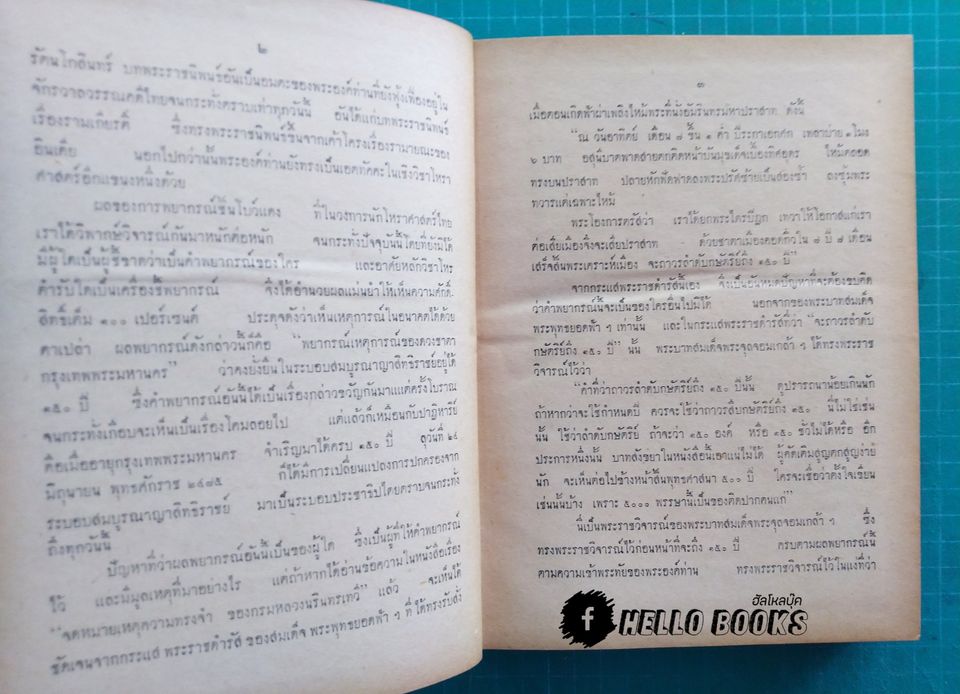 ๒
รัตนโกสินทร์ บทพระราชนิพนธ์อันเป็นอมตะของพระองค์ท่านที่ยังฟุ้งเฟื่องอยู่ใน
จักรวาลวรรณคดีไทยจนกระทั่งคราบเท่าทุกวันนี้ อันได้แก่บทพระราชนิพนธ์
เรื่องรามเกียรติ์ ซึ่งทรงพระราชนิพนธ์ขึ้นจากเค้าโครงเรื่องรามายณะของ
อินเดีย นอกไปกว่านั้นพระองค์ท่านยังทรงเป็นเอตทัคคะในเชิงวิชาโหรา
ศาสตร์อีกแขนงหนึ่งด้วย
ผลของการพยากรณ์ชิ้นโบว์แดง ที่ในวงการนักโหราศาสตร์ไทย
เราได้วิพากษ์วิจารณ์กันมาหนักต่อหนัก จนกระทั่งปัจจุบันนี้โดยที่ยังมิได้
มีผู้ใดเป็นผู้ชี้ขาดว่าเป็นคำพยากรณ์ของใคร และอาศัยหลักวิชาโหร
ตำรับใดเป็นเครื่องชี้พยากรณ์ จึงได้อำนวยผลแม่นยำให้เห็นความศักดิ์-
สิทธิ์เต็ม ๑๐๐ เปอร์เซนต์ ประดุจดังว่าเห็นเหตุการณ์ในอนาคตได้ด้วย
ตาเปล่า ผลพยากรณ์ดังกล่าวนี้ก็คือ "พยากรณ์เหตุการณ์ของดวงชาตา
กรุงเทพพระมหานคร" ว่าคงยั่งยืนในระบอบสมบูรณาญาสิทธิราชย์อยู่ได้
๑๕๐ ปี ซึ่งคำพยากรณ์อันนี้ได้เป็นเรื่องกล่าวขวัญกันมาแต่ครั้งโบราณ
จนกระทั่งเกือบจะเห็นเป็นเรื่องโคมลอยไป แต่แล้วก็เหมือนกับปาฏิหาริย์
คือเมื่ออายุกรุงเทพพระมหานคร จำเริญมาได้ครบ ๑๕๐ ปี ลุวันที่ ๒๔
มิถุนายน พุทธศักราช ๒๔๗๕ ก็ได้มีการเปลี่ยนแปลงการปกครองจาก
ระบอบสมบูรณาญาสิทธิราชย์ มาเป็นระบอบประชาธิปไตยตราบจนกระทั่ง
ถึงทุกวันนี้
ปัญหาที่ว่าผลพยากรณ์อันนี้เป็นของผู้ใด ซึ่งเป็นผู้ที่ให้คำพยากรณ์
ไว้ และมีมูลเหตุที่มาอย่างไร แต่ถ้าหากได้อ่านข้อความในหนังสือเรื่อง
"จดหมายเหตุความทรงจำ ของกรมหลวงนรินทรเทวี" แล้ว จะเห็นได้
ชัดเจนจากกระแส พระราชดำรัส ของสมเด็จ พระพุทธยอดฟ้า ๆ ที่ได้ทรงรับสั่ง
๓
เมื่อตอนเกิดฟ้าผ่าเพลิงไหม้พระที่นั่งอัมรินทรมหาปราสาท ดังนี้
"ณ วันอาทิตย์ เดือน ๗ ขึ้น ๑ ค่ำ ปีระกาเอกศก เพลาบ่าย ๑ โมง
๖ บาท อสุนีบาตพาดสายตกติดหน้าบันมุขเด็จเบื้องทิศอุดร ไหม้ตลอด
ทรงบนปราสาท ปลายหักฟัดฟาดลงพระปรัศซ้ายเป็นสองซ้ำ ลงซุ้มพระ
ทวารแต่เฉพาะไหม้
พระโองการตรัสว่า เราได้ยกพระไตรปิฎก เทวาให้โอกาสแก่เรา
ต่อเสียเมืองจึงจะเสียปราสาท ด้วยชาตาเมืองคอดกิ่วใน ๗ ปี ๗ เดือน
เสร็จสิ้นพระเคราะห์เมือง จะถาวรลำดับกษัตริย์ถึง ๑๕๐ ปี"
จากกระแสพระราชดำรัสนี้เอง จึงเป็นอันหมดปัญหาที่จะต้องขบคิด
ว่าคำพยากรณ์นี้จะเป็นของใครอื่นไปมิได้ นอกจากของพระบาทสมเด็จ
พระพุทธยอดฟ้า ๆ เท่านั้น และในกระแสพระราชดำรัสที่ว่า "จะถาวรลำดับ
กษัตริย์ถึง ๑๕๐ ปี" นั้น พระบาทสมเด็จพระจุลจอมเกล้า ๆ ได้ทรงพระราช
วิจารณ์ไว้ว่า
"คำที่ว่าถาวรลำดับกษัตริย์ถึง ๑๕๐ ปีนั้น ดูปรารถนาน้อยเกินนัก
ถ้าหากว่าจะใช้กำหนดปี ควรจะใช้ว่าถาวรสืบกษัตริย์ถึง ๑๕๐ นี่ไม่ใช่เช่น
นั้น ใช้ว่าลำดับกษัตริย์ ถ้าจะว่า ๑๕๐ องค์ หรือ ๑๕๐ ชั่วไม่ได้หรือ อีก
ประการหนึ่งนั้น บาทสังขยาในหนังสือนี้เอาแน่ไม่ได้ ผู้คัดเดิมสูญตกสูญง่าย
นัก จะเห็นต่อไปข้างหน้าสิ้นพุทธศาสนา ๕๐๐ ปี ใครจะเชื่อว่าตั้งใจเขียน
เช่นนั้นบ้าง เพราะ ๕๐๐๐ พรรษานี้เป็นของติดปากคนแก่"
นี่เป็นพระราชวิจารณ์ของพระบาทสมเด็จพระจุลจอมเกล้า ๆ ซึ่ง
ทรงพระราชวิจารณ์ไว้ก่อนหน้าที่จะถึง ๑๕๐ ปี ครบตามผลพยากรณ์นี้
ตามความเข้าพระทัยของพระองค์ท่าน ทรงพระราชวิจารณ์ไว้ในแง่ที่ว่า
ฮัลโหลบุ๊ค
f HELLO BOOKS